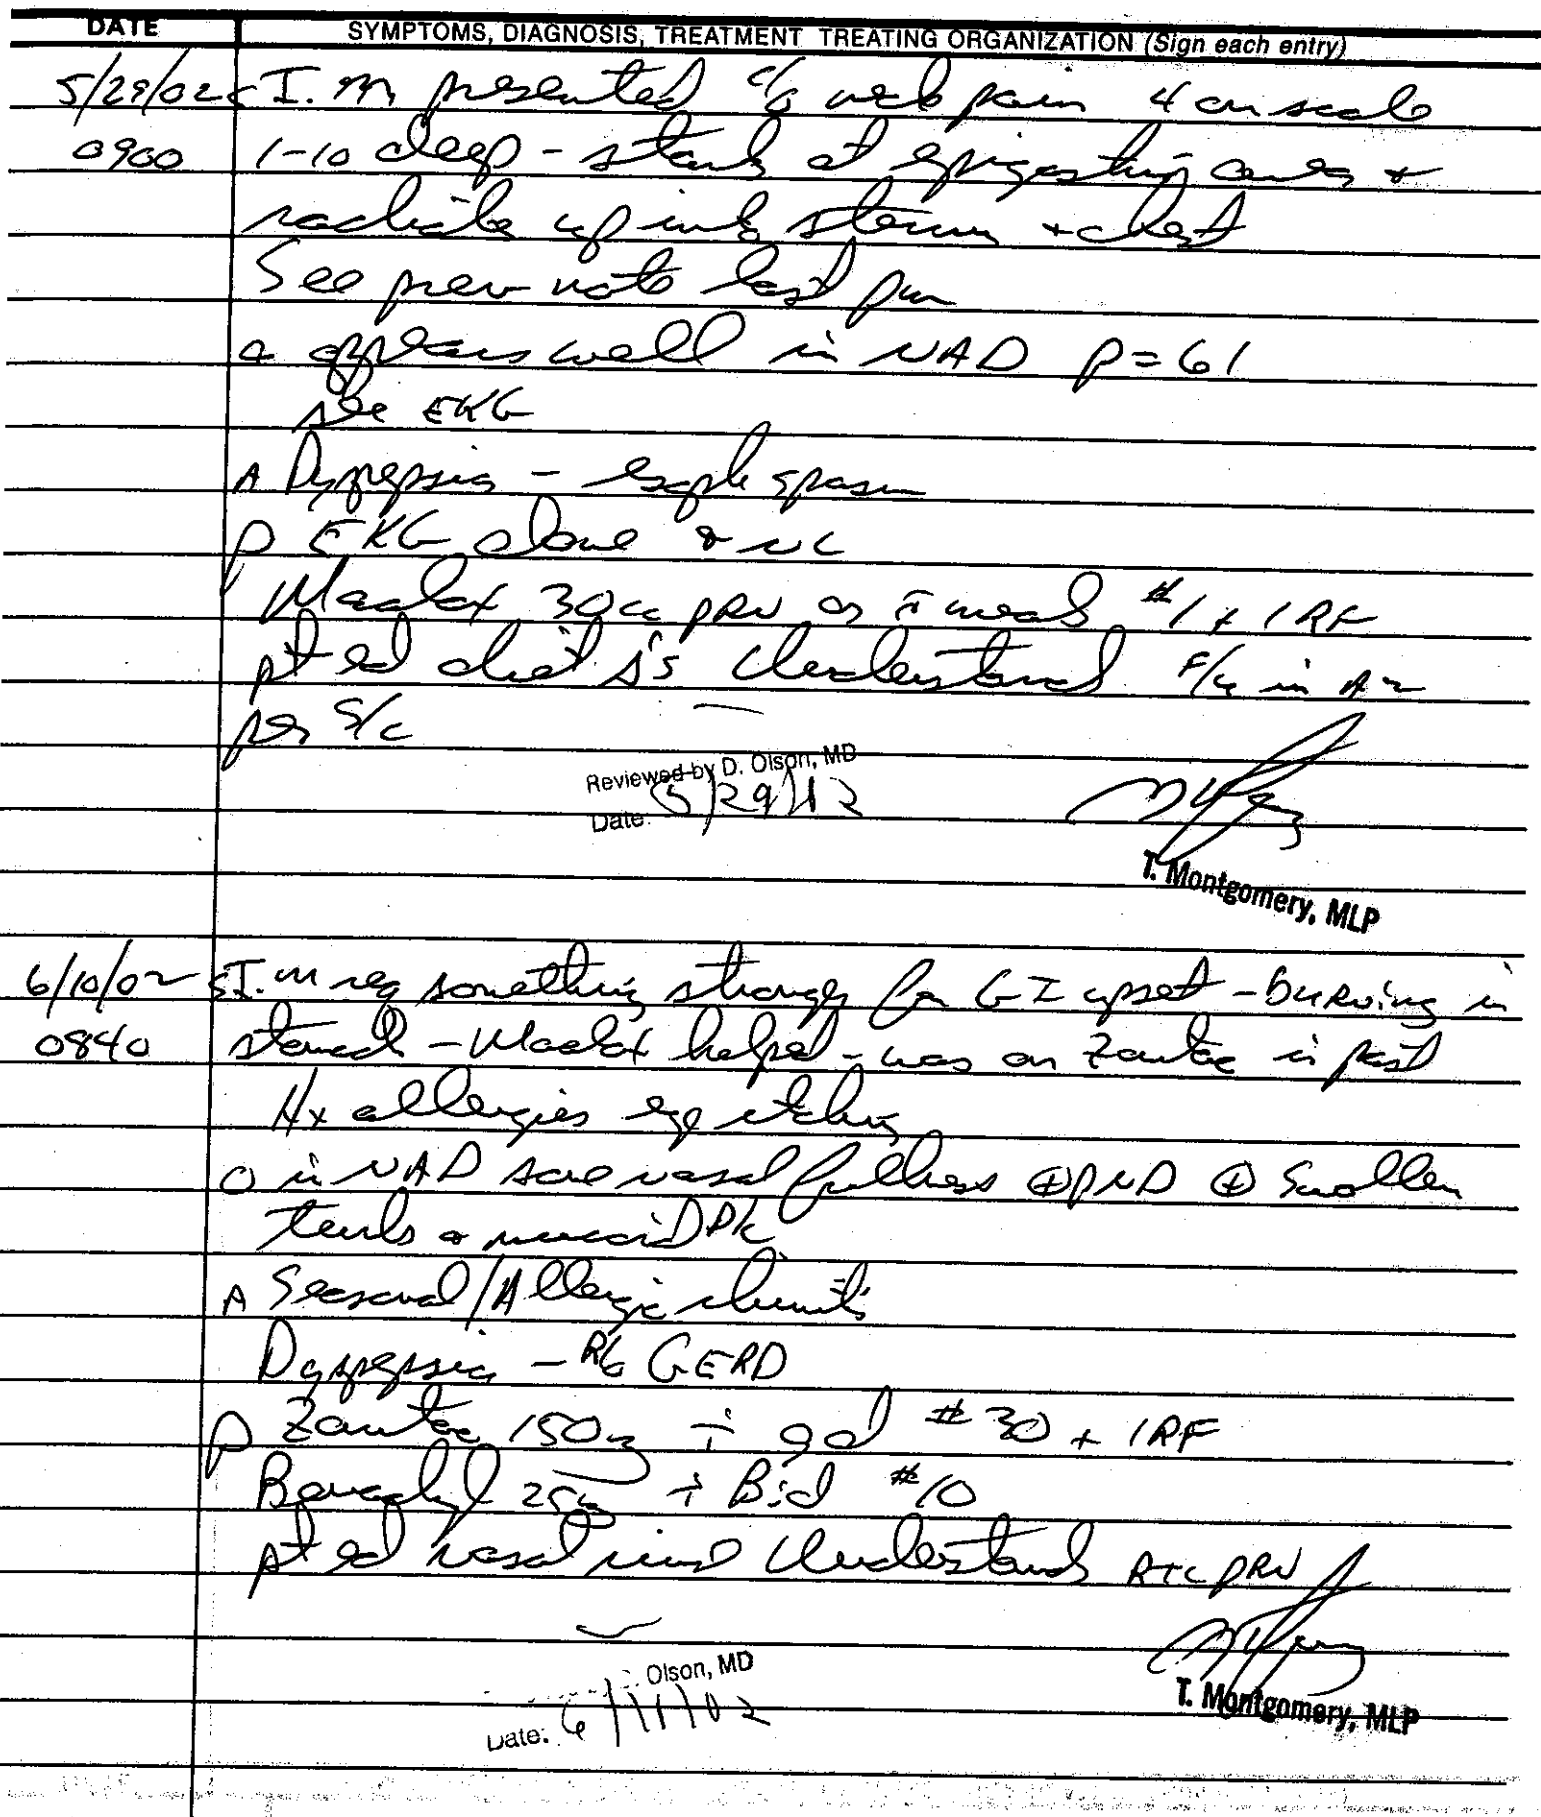 DATE SYMPTOMS, DIAGNOSIS, TREATMENT TREATING ORGANIZATION (Sign each entry)
5/29/02 s I.M presented c/o pain 4 on scale
0900 1-10 deep - starts at epigastric &
radiate up into sternum + chest
See prev note last pm
o appears well in NAD P=61
see EKG
A Dyspepsia - esoph spasm
P EKG done &
Maalox 30cc PRN or c̄ meals #1 + 1RF
pt ed diet Understand F/u in
per S/C
Reviewed by D. Olson, MD
Date: 5/29/02
T. Montgomery, MLP
6/10/02 s I.M req something stronger for GI upset - burning in
0840 stomach - Maalox helped - was on Zantac in past
Hx allergies eye itching
O in NAD nasal fullness ⊕PND ⊕ Swollen
turbs &
A Seasonal/Allergic rhinitis
Dyspepsia - R/o GERD
P Zantac 150mg i qd #30 + 1RF
Benadryl 25mg i Bid #10
pt ed nasal Understands RTC PRN
Olson, MD
Date: 6/11/02
T. Montgomery, MLP